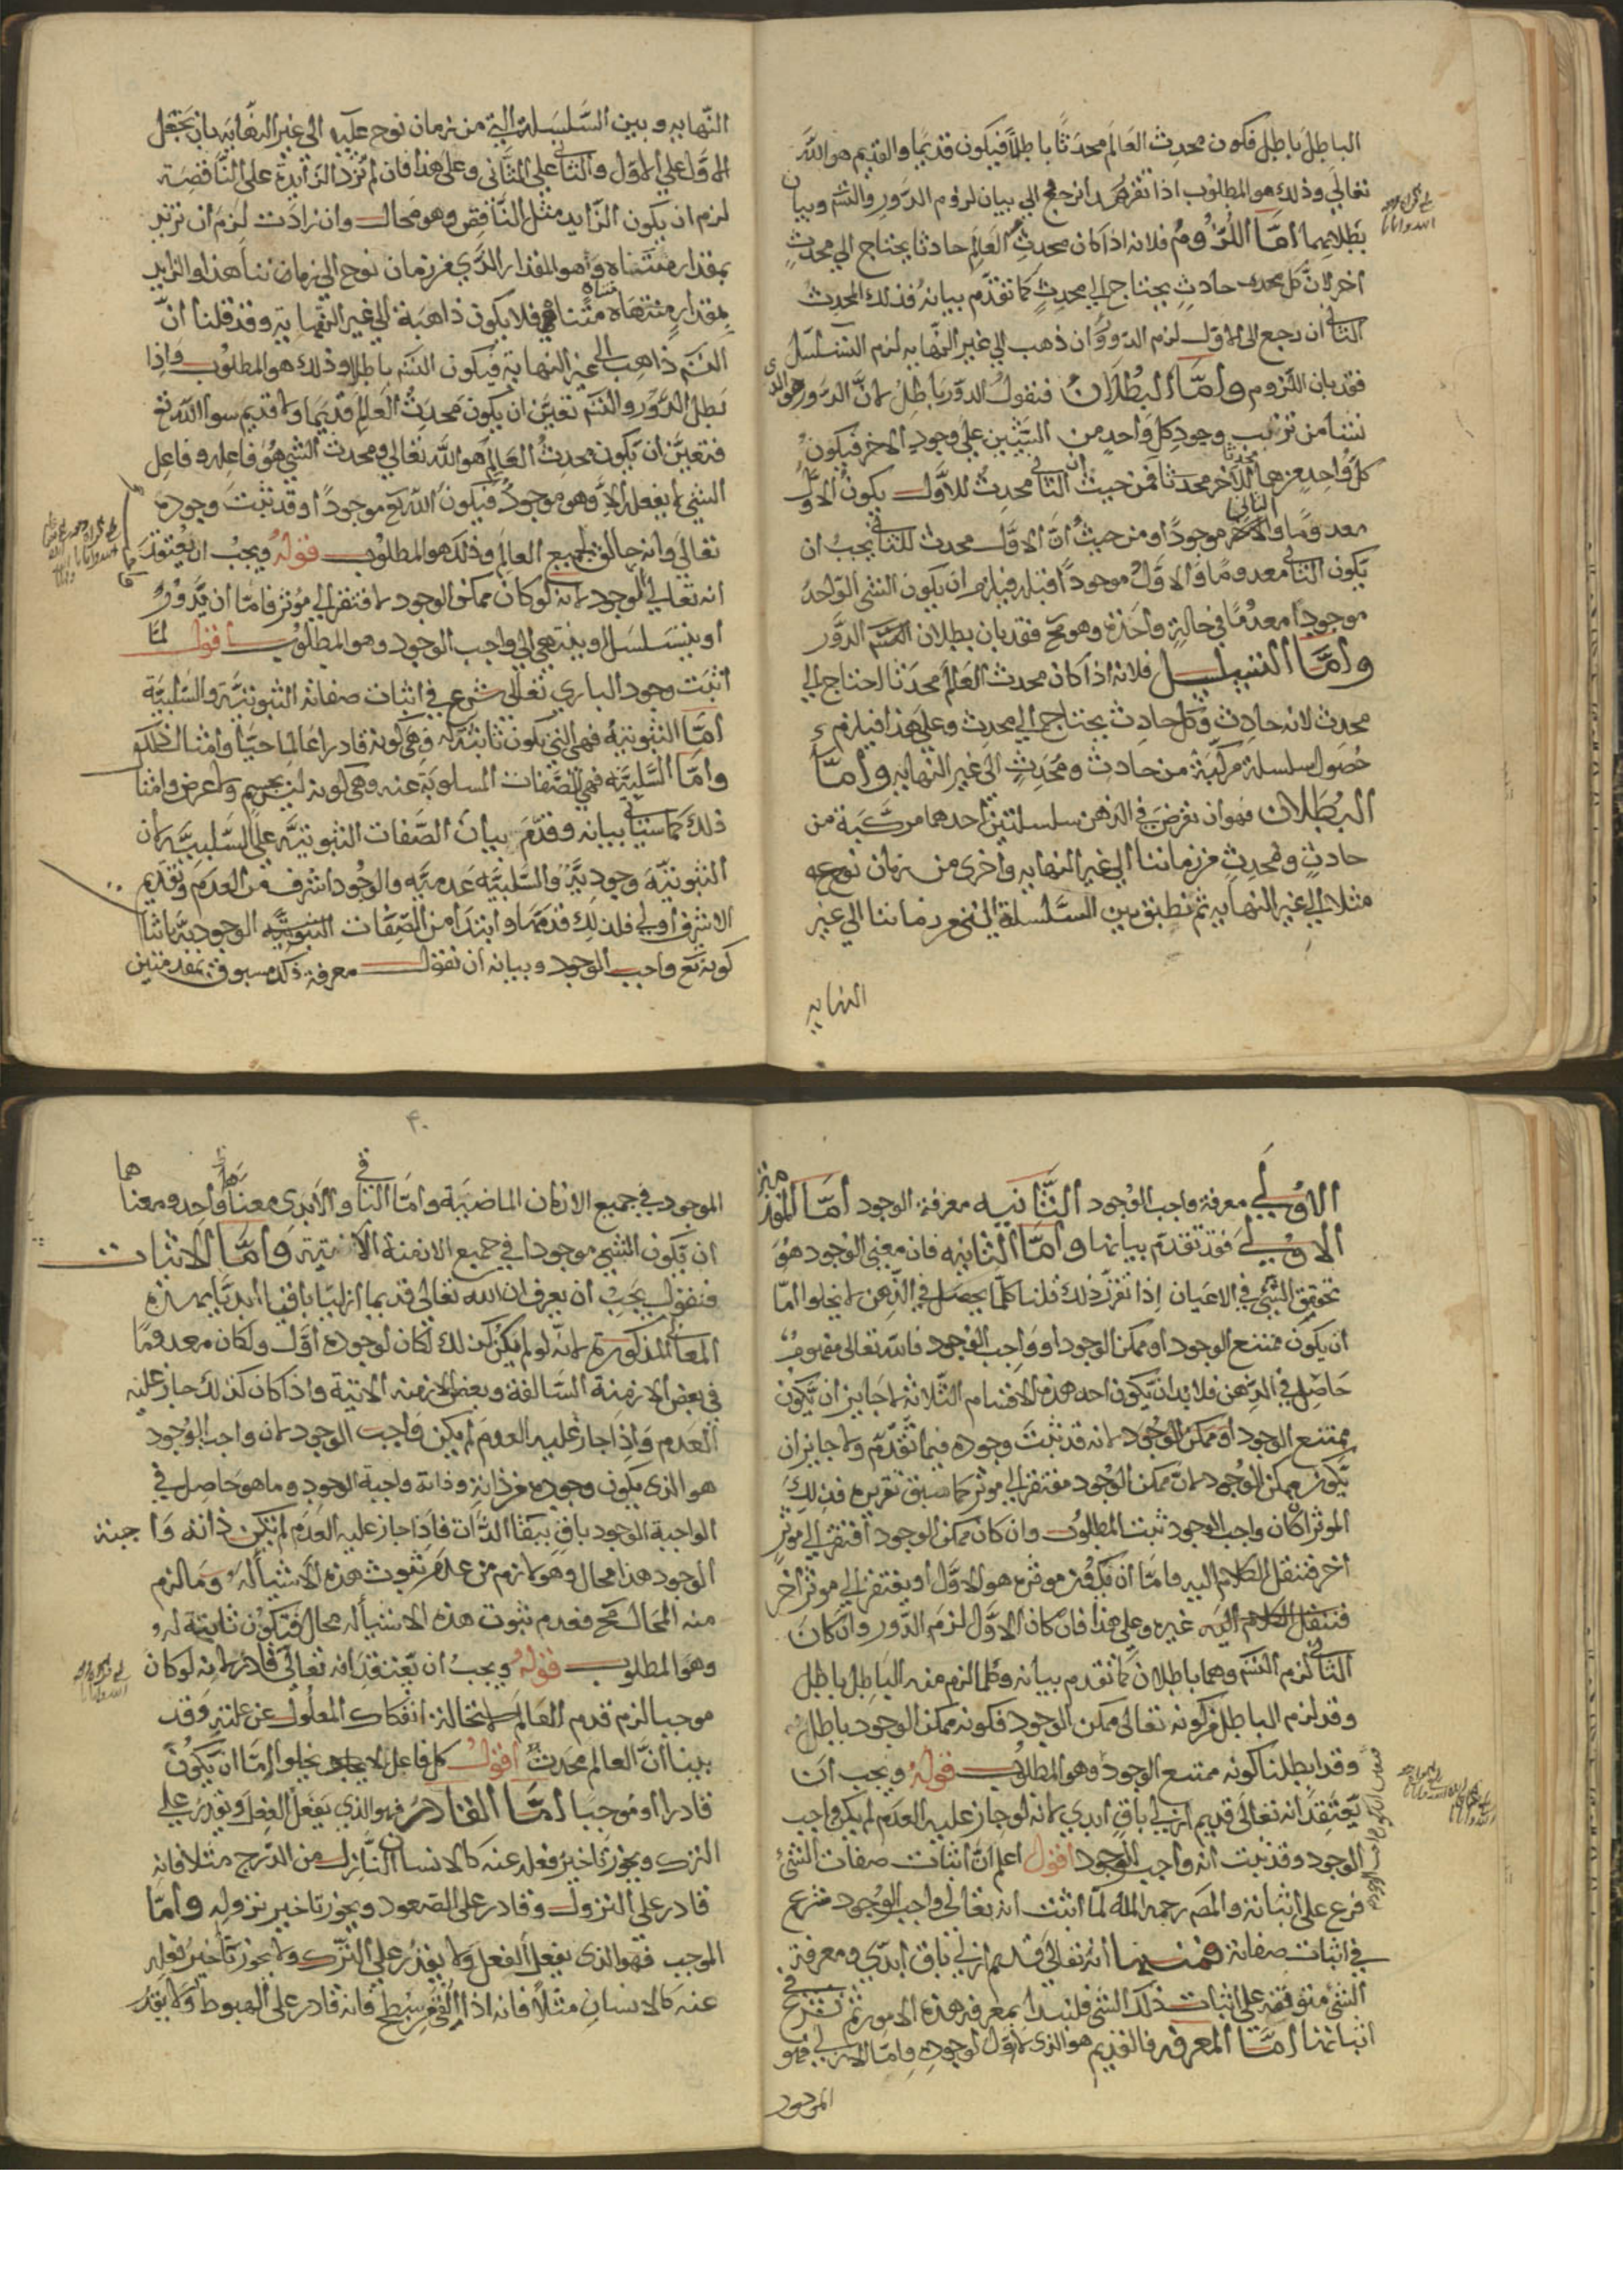 الباطل باطل فكون محدث العالم محدثا باطلا فيكون قديما والقديم هو الله
تعالى وذلك هو المطلوب اذا تقرر هذا نرجع الي بيان لزوم الدور والتسم وبيان
بطلانهما امّا اللزوم فلانه اذا كان محدث العالم حادثا يحتاج الي محدث
اخر لانّ كل محدث حادث يحتاج الي محدث كما تقدّم بيانه فذلك المحدث
الثاني ان رجع الى الاول لزم الدور وان ذهب الي غير النهايه لزم التسلسل
فقد بان اللزوم وامّا البطلان فنقول الدور باطل لانّ الدور هو الذى
ينشا من ترتب وجود كل واحد من الشيئين على وجود الاخر فيكون
كل واحد منهما محدثا للآخر محدثا فمن حيث ان الثاني محدث للأول يكون الاول
معدوما والاخر الثاني موجودا ومن حيث انّ الاول محدث للثاني يجب ان
يكون الثاني معدوما والاول موجودا قبله فيلزم ان يكون الشي الواحد
موجودا معدوما في حالة واحدة وهو مح فقد بان بطلان الدور
وامّا التسلسل فلانه اذا كان محدث العالم محدثا لاحتاج الي
محدث لانه حادث وكل حادث يحتاج الي محدث وعلى هذا فيلزم
حصول سلسلة مركبة من حادث ومحدث الى غير النهايه وامّا
البطلان فهو ان نفرض في الذهن سلسلتين احدهما مركبة من
حادث ومحدث من زماننا الي غير النهايه واخرى من زمان نوح عه
مثلا الي غير النهايه ثم نطبق بين السلسلة التي من زماننا الي غير
النهايه
النهايه وبين السلسلة التي من زمان نوح عليه الى غير النهايه بان نجعل
الاول علي الاول والثاني على الثاني وعلى هذا فان لم تزد الزائدة على الناقصة
لزم ان يكون الزايد مثل الناقص وهو محال وان زادت لزم ان تزيد
بمقدار متناه وهو المقدار الذي من زمان نوح الي زماننا هذا والزايد
بمقدار متناه متناه فلا يكون ذاهبة الي غير النهاية وقد قلنا انّ
التسم ذاهب الي غير النهاية فيكون التسم باطلا وذلك هو المطلوب واذا
بطل الدور والتسم تعيّن ان يكون محدث العالم قديما ولا قديم سوا الله تع
فتعيّن ان يكون محدث العالم هو الله تعالي ومحدث الشي هو فاعله وفاعل
الشي لا يفعله الا وهو موجود فيكون الله تع موجودا وقد ثبت وجوده
تعالى وانه خالق لجميع العالم وذلك هو المطلوب قوله ويجب ان يعتقد
انه تعالي واجب الوجود لانه لو كان ممكن الوجود لافتقر الي موثر فامّا ان يدور
او يتسلسل او ينتهي الي واجب الوجود وهو المطلوب اقول لمّا
اثبت وجود الباري تعالي شرع في اثبات صفاته الثبوتيّة والسلبيّة
امّا الثبوتيه فهي التي تكون ثابتة له وهي كونه قادرا عالما حيّا وامثال ذلك
وامّا السّلبيّه فهي الصّفات المسلوبة عنه وهي كونه ليس بجسم ولا عرض وامثال
ذلك كما سياتي بيانه وقدّم بيان الصّفات الثبوتيّه على السّلبيّه لان
الثبوتيّه وجوديّة والسّلبيّه عدميّه والوجود اشرف من العدم وتقديم
الاشرف اولي فلذلك قدمها وابتدا من الصّفات الوجوديّة باثبات
كونه تع واجب الوجود وبيانه ان نقول معرفة ذلك مسبوق بمقدمتين
الاولي معرفة واجب الوجود الثّانيه معرفة الوجود امّا المقدمة
الاولي فقد تقدّم بيانها وامّا الثانيه فان معنى الوجود هو
تحقق الشي في الاعيان اذا تقرر ذلك قلنا كلما يحصل في الذهن لا يخلوا امّا
ان يكون ممتنع الوجود او ممكن الوجود او واجب الوجود فالله تعالى مفهوم
حاصل في الذهن فلا بد ان يكون احد هذه الاقسام الثلاثة لا جايز ان يكون
ممتنع الوجود لانه قد ثبت وجوده فيما تقدّم ولا جايز ان
يكون ممكن الوجود لان ممكن الوجود مفتقر الي موثر كما سبق تقريره فذلك
الموثر ان كان واجب الوجود ثبت المطلوب وان كان ممكن الوجود افتقر الي موثر
اخر فننقل الكلام اليه فامّا ان يكون موثره هو الاوّل او يفتقر الي موثر اخر
فننقل الكلام اليه غيره وعلى هذا فان كان الاوّل لزم الدّور وان كان
الثاني لزم التسم وهما باطلان كما تقدم بيانه وكلما لزم منه الباطل باطل
وقد لزم الباطل من كونه تعالى ممكن الوجود فكونه ممكن الوجود باطل
وقد ابطلنا كونه ممتنع الوجود وهو المطلوب قوله ويجب ان
يعتقد انه تعالى قديم ازلي باق ابدي لانه لو جاز عليه العدم لم يكن واجب
الوجود وقد ثبت انه واجب الوجود اقول اعلم انّ اثبات صفات الشئ
فرع على اثباته والمصر رحمه الله لمّا اثبت انه تعالى واجب الوجود شرع
في اثبات صفاته فمنها انه تعالى قديم ازلي باق ابدّي ومعرفة
الشئ متوقفه على اثبات ذلك الشئ فلنبدا بمعرفه هذه الامور ثم نشرع في
اثباتها امّا المعرفه فالقديم هو الذى لا اول لوجوده وامّا الازلي فهو
الموجود
الموجود في جميع الازمان الماضية وامّا الباقي والابدى معناهما واحد ومعناهما
ان يكون الشي موجودا في جميع الازمنة الآتية وامّا الاثبات
فنقول يجب ان يعرف ان الله تعالى قديما ازليّا باقيا ابديّا بهذه
المعاني المذكورة لانّه لو لم يكن كذلك لكان لوجوده اوّل ولكان معدوما
في بعض الازمنة السّالفة وبعض الازمنه الاتية واذا كان كذلك جاز عليه
العدم واذا جاز عليه العدم لم يكن واجب الوجود لان واجب الوجود
هو الذى يكون وجوده من ذاته وذاته واجبة الوجود وما هو حاصل في
الواجبة الوجود باق ببقا الذّات فاذا جاز عليه العدم لم تكن ذاته واجبة
الوجود هذا محال وهو لازم من عدم ثبوت هذه الاشيا له وما لزم
منه المحال مح فعدم ثبوت هذه الاشيا له محال فتكون ثابتة له
وهو المطلوب قوله ويجب ان يعتقد انه تعالى قادر لانه لو كان
موجبا لزم قدم العالم لاستحالة انفكاك المعلول عن علته وقد
بينا انّ العالم محدث اقول كل فاعل لا يخلوا امّا ان يكون
قادرا او موجبا امّا القادر فهو الذي يفعل الفعل ويقدر علي
الترك ويجوز تاخير فعله عنه كالانسان النّازل من الدّرج مثلا فانه
قادر على النزول وقادر على الصّعود ويجوز تاخير نزوله وامّا
الموجب فهو الذى يفعل الفعل ولا يقدر علي التّرك ولا يجوز تاخير فعله
عنه كالانسان مثلا فانه اذا القي من سطح فانه قادر على الهبوط ولا يقدر